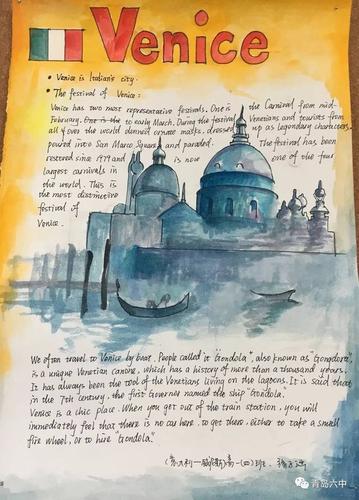 Venice
• Venice is Italian's city.
• The festival of Venice:
Venice has two most representative festivals. One is the Carnival from mid-
February. One is the to early March. During the festival Venetians and tourists from
all over the world donned ornate masks, dressed up as legendary characters,
poured into San Marco Square and paraded. The festival has been
restored since 1979 and is now one of the four
largest carnivals in
the world. This is
the most distinctive
festival of
Venice.
We often travel to Venice by boat. People called it "Gondola", also known as "Gongdora",
is a unique Venetian canone, which has a history of more than a thousand years.
It has always been the tool of the Venetians living on the lagoons. It is said that
in the 7th century, the first Governor named the ship "Gondola".
Venice is a chic place. When you get out of the train station, you will
immediately feel that there is no car here, to get there, either to take a small
fire wheel, or to hire "Gondola."
(意大利—威尼斯) 高一(四)班
青岛六中